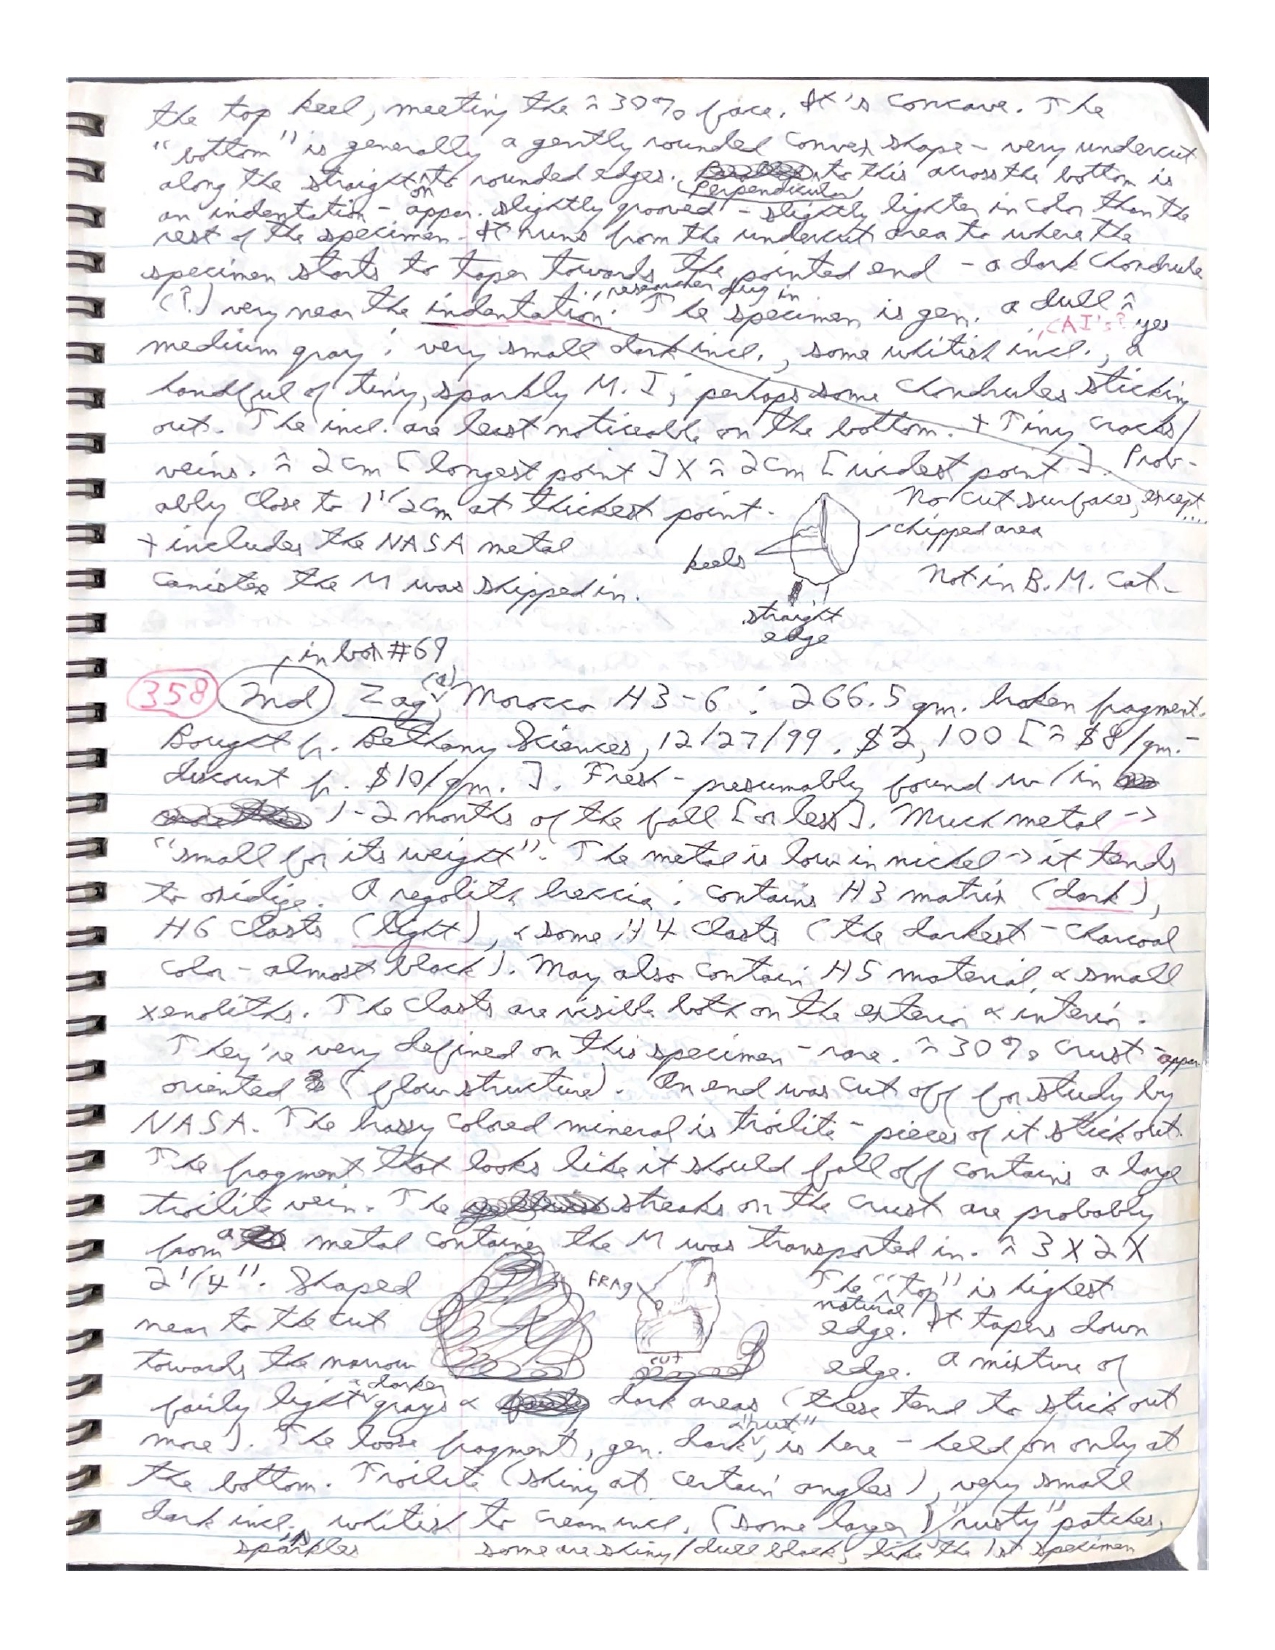 the top keel, meeting the ≈ 30% face. It's concave. The
"bottom" is generally a gently rounded convex shape - very undercut
along the straight to rounded edges. Perpendicular to this across the bottom is
an indentation - appar. slightly grooved - slightly lighter in color than the
rest of the specimen. It runs from the undercut area to where the
specimen starts to taper towards the pointed end - a dark chondrule
(?) very near the indentation. The specimen is gen. a dull ≈
researcher dug in
CAI's? yes
medium gray; very small dark incl., some whitish incl., a
handful of tiny, sparkly M. I; perhaps some chondrules sticking
out. The incl. are least noticeable on the bottom. + Tiny cracks/
veins. ≈ 2 cm [longest point] X ≈ 2 cm [widest point]. Prob-
ably close to 1 1/2 cm at thickest point.
No cut surfaces, except....
chipped area
+ includes the NASA metal
keels
canister the M was shipped in.
Not in B. M. Cat.
straight
edge
in box #69
358 2nd Zag (a), Morocco H3-6: 266.5 gm. broken fragment.
Bought fr. Bethany Sciences, 12/27/99. $2,100 [≈ $8/gm. -
discount fr. $10/gm.]. Fresh - presumably found w/in
1-2 months of the fall [or less]. Much metal ->
"small for its weight". The metal is low in nickel -> it tends
to oxidize. A regolith breccia; contains H3 matrix (dark),
H6 clasts (light), & some H4 clasts (the darkest - charcoal
color - almost black). May also contain H5 material & small
xenoliths. The clasts are visible both on the exterior & interior.
They're very defined on this specimen - rare. ≈ 30% crust - appar.
oriented (flow structure). An end was cut off for study by
NASA. The brassy colored mineral is troilite - pieces of it stick out.
The fragment that looks like it should fall off contains a large
troilite vein. The streaks on the crust are probably
from a metal container the M was transported in. ≈ 3 X 2 X
2 1/4". Shaped
FRAG
The "top" is highest
natural
near to the cut
edge. It tapers down
towards the narrow
cut
edge. A mixture of
fairly light & darker grays & dark areas (these tend to stick out
more). The loose fragment, gen. dark & "rust", is here - held on only at
the bottom. Troilite (shiny at certain angles), very small
dark incl., whitish to cream incl. (some larger) "rusty" patches,
sparkles
some are shiny/dull black, like the 1st specimen